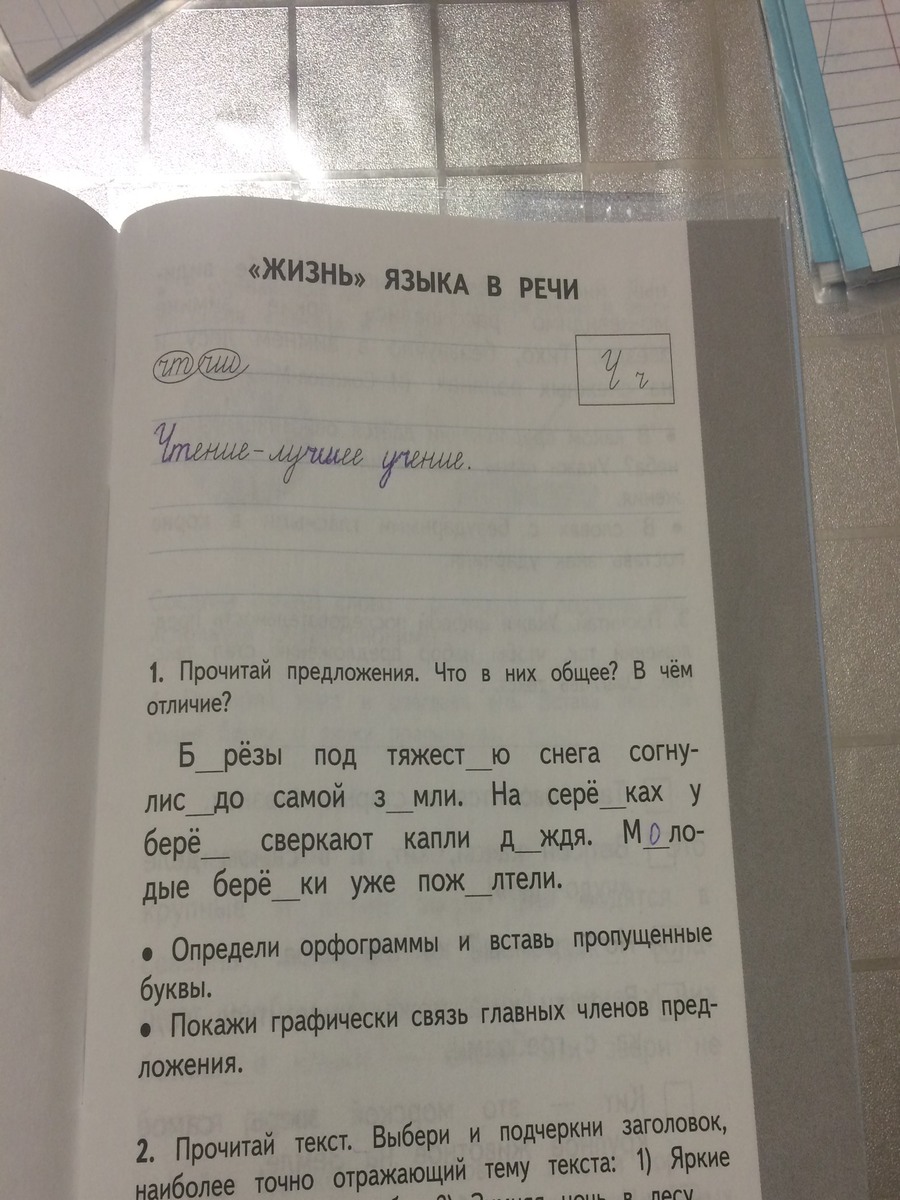 «ЖИЗНЬ» ЯЗЫКА В РЕЧИ
чт чш
Ч ч
Чтение - лучшее учение.
1. Прочитай предложения. Что в них общее? В чём
отличие?
Б__рёзы под тяжест__ю снега согну-
лис__до самой з__мли. На серё__ках у
берё__ сверкают капли д__ждя. Моло-
дые берё__ки уже пож__лтели.
• Определи орфограммы и вставь пропущенные
буквы.
• Покажи графически связь главных членов пред-
ложения.
2. Прочитай текст. Выбери и подчеркни заголовок,
наиболее точно отражающий тему текста: 1) Яркие